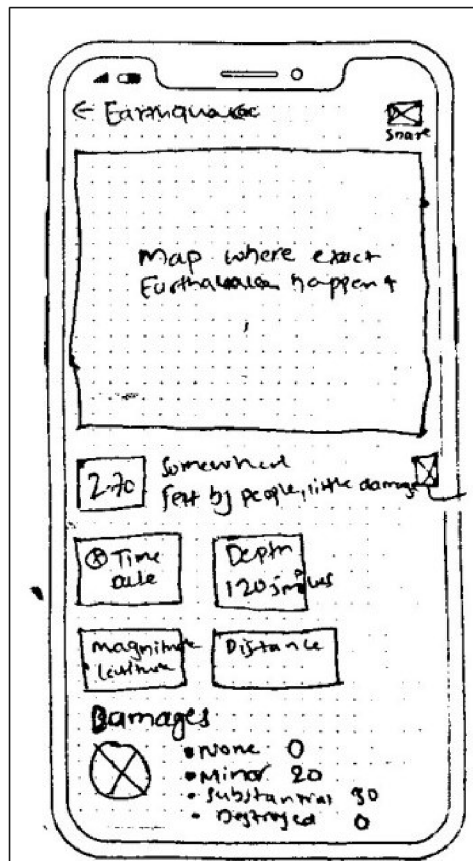 ← Earthquake
Share
Map where exact
Earthquake happen
2.70
Somewhere
Felt by people, little damage
Time
Date
Depth
120.5 miles
Magnitude
Distance
Damages
• None 0
• Minor 20
• Substantial 30
• Destroyed 0